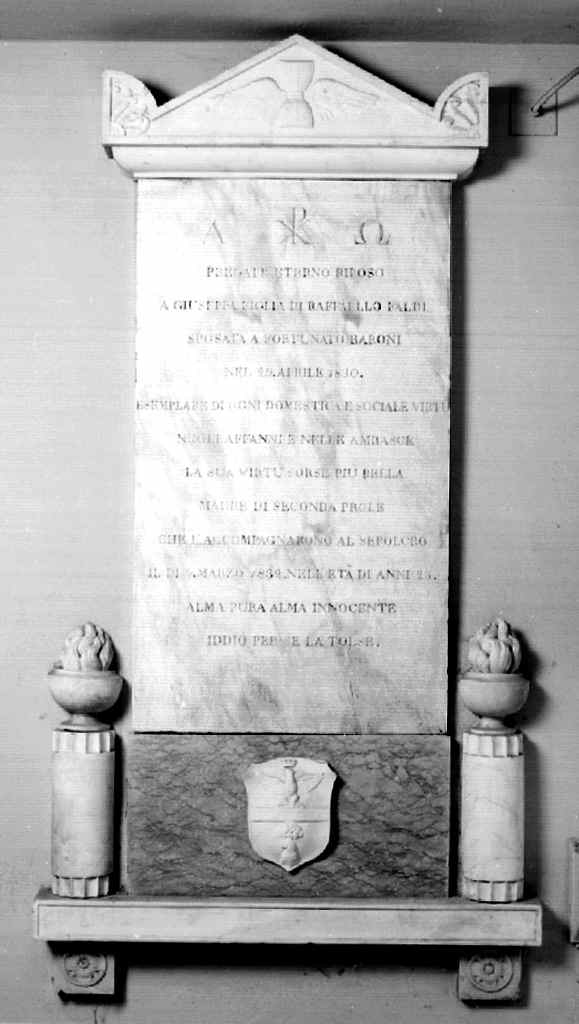 Α ☧ Ω
PREGALE ETERNO RIPOSO
A GIUSEPPA FIGLIA DI RAFFAELLO FALDI
SPOSATA A FORTUNATO BARONI
NEL APRILE 1830.
ESEMPLARE DI OGNI DOMESTICA E SOCIALE VIRTU
NEGLI AFFANNI E NELLE AMBASCE
LA SUA VIRTU SORSE PIU BELLA
MADRE DI SECONDA PROLE
CHE L'ACCOMPAGNARONO AL SEPOLCRO
IL DI MARZO 1834. NELL ETÀ DI ANNI
ALMA PURA ALMA INNOCENTE
IDDIO PER SE LA TOLSE.